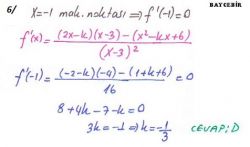 BAYÇEBİR
6/ x=-1 mak. noktası ⇒ f'(-1)=0
f'(x) = ((2x-k)(x-3) - (x²-kx+6)) / (x-3)²
f'(-1) = ((-2-k)(-4) - (1+k+6)) / 16 = 0
8+4k-7-k=0
3k=-1 ⇒ k=-1/3 CEVAP; D